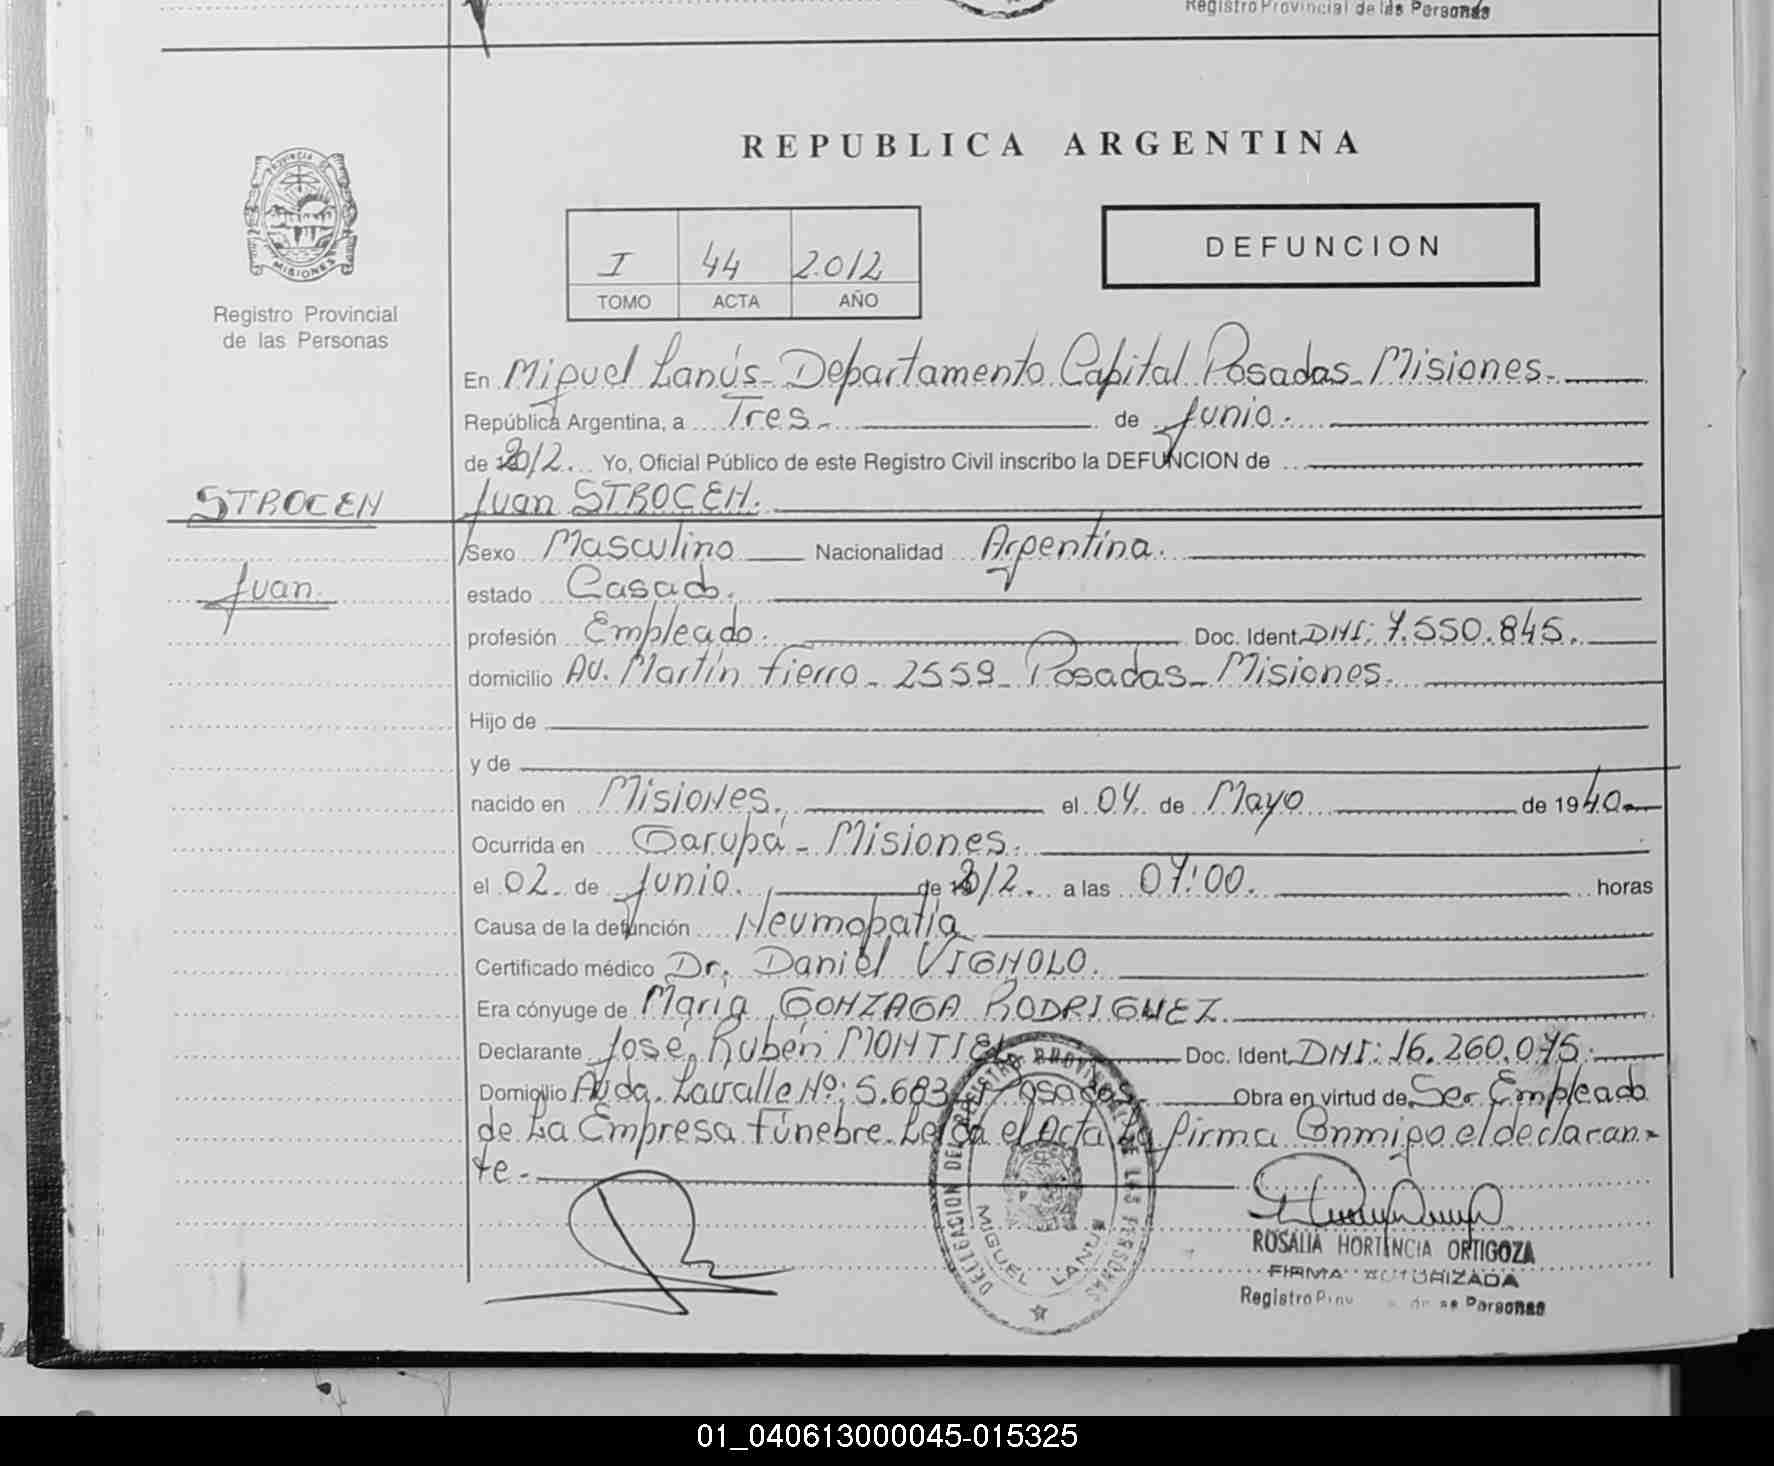 Registro Provincial de las Personas
REPUBLICA ARGENTINA
PROVINCIA DE
MISIONES
Registro Provincial
de las Personas
I 44 2012
TOMO ACTA AÑO
DEFUNCION
En Miguel Lanús - Departamento Capital Posadas - Misiones.
República Argentina, a Tres. de Junio.
de 2012. Yo, Oficial Público de este Registro Civil inscribo la DEFUNCION de
STROCEN
Juan STROCEN.
Sexo Masculino Nacionalidad Argentina.
Juan
estado Casado.
profesión Empleado. Doc. Ident. DNI: 7.550.845.
domicilio Av. Martín Fierro - 2559 - Posadas - Misiones.
Hijo de
y de
nacido en Misiones. el 04. de Mayo de 1940.
Ocurrida en Garupá - Misiones.
el 02. de Junio. de 2012. a las 07:00. horas
Causa de la defunción Neumopatia
Certificado médico Dr. Daniel VIGNOLO.
Era cónyuge de María GONZAGA RODRIGUEZ.
Declarante José Rubén MONTIEL Doc. Ident. DNI: 16.260.075.
Domicilio Avda. Lavalle Nº: 5.683 - Posadas. Obra en virtud de Ser Empleado
de La Empresa Fúnebre. Leída el Acta La firma Conmigo el declaran-
te.-
DELEGACION DEL REGISTRO PROVINCIAL DE LAS PERSONAS
MIGUEL LANUS
ROSALIA HORTENCIA ORTIGOZA
FIRMA AUTORIZADA
Registro Prov de las Personas
01_040613000045-015325